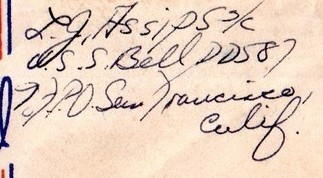 L.J. Assip S2/c
U.S.S. Bell DD587
F.P.O. San Francisco,
Calif.